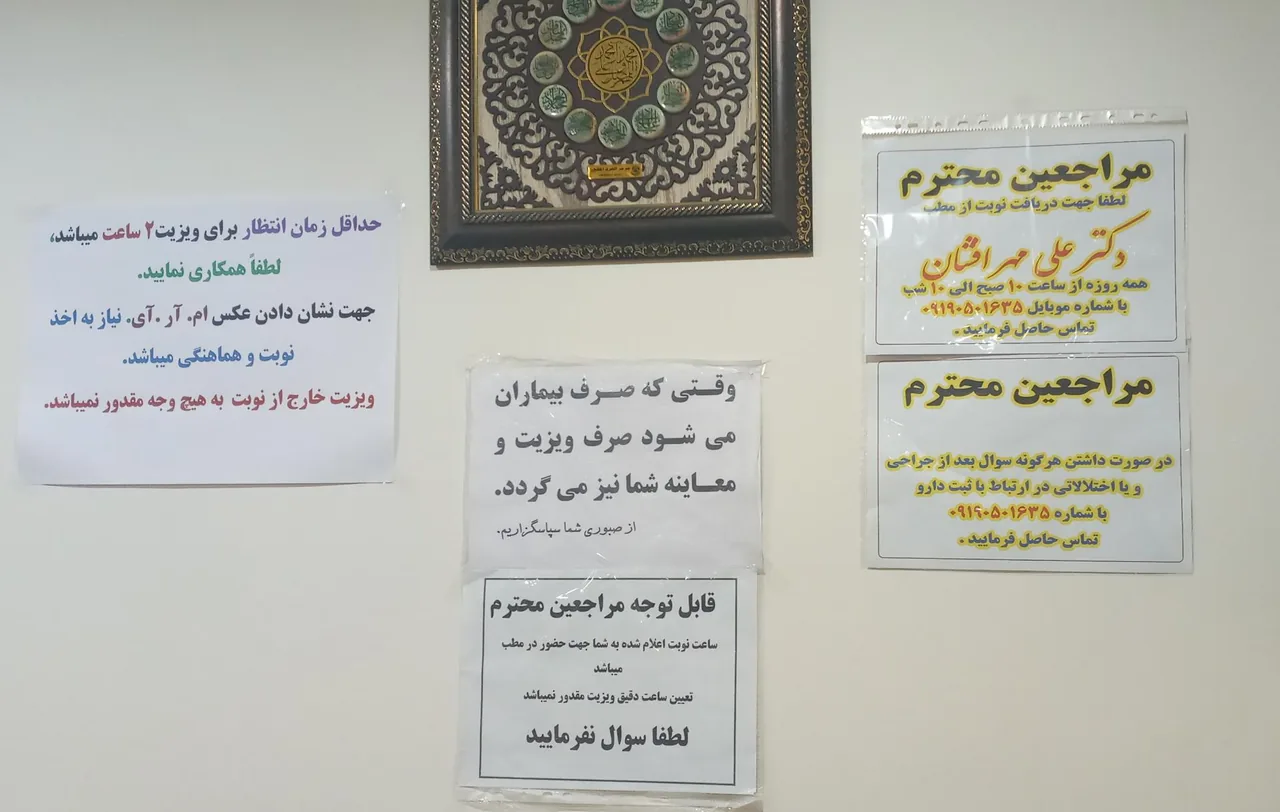 مراجعین محترم
لطفا جهت دریافت نوبت از مطب
دکتر علی مهرافشان
همه روزه از ساعت ۱۰ صبح الی ۱۰ شب
با شماره موبایل ۰۹۱۹۰۵۰۱۶۳۵
تماس حاصل فرمایید .
مراجعین محترم
در صورت داشتن هرگونه سوال بعد از جراحی
و یا اختلالاتی در ارتباط با ثبت دارو
با شماره ۰۹۱۹۰۵۰۱۶۳۵
تماس حاصل فرمایید .
وقتی که صرف بیماران
می شود صرف ویزیت و
معاینه شما نیز می گردد.
از صبوری شما سپاسگزاریم.
قابل توجه مراجعین محترم
ساعت نوبت اعلام شده به شما جهت حضور در مطب
میباشد
تعیین ساعت دقیق ویزیت مقدور نمیباشد
لطفا سوال نفرمایید
حداقل زمان انتظار برای ویزیت۲ ساعت میباشد،
لطفاً همکاری نمایید.
جهت نشان دادن عکس ام. آر .آی. نیاز به اخذ
نوبت و هماهنگی میباشد.
ویزیت خارج از نوبت به هیچ وجه مقدور نمیباشد.